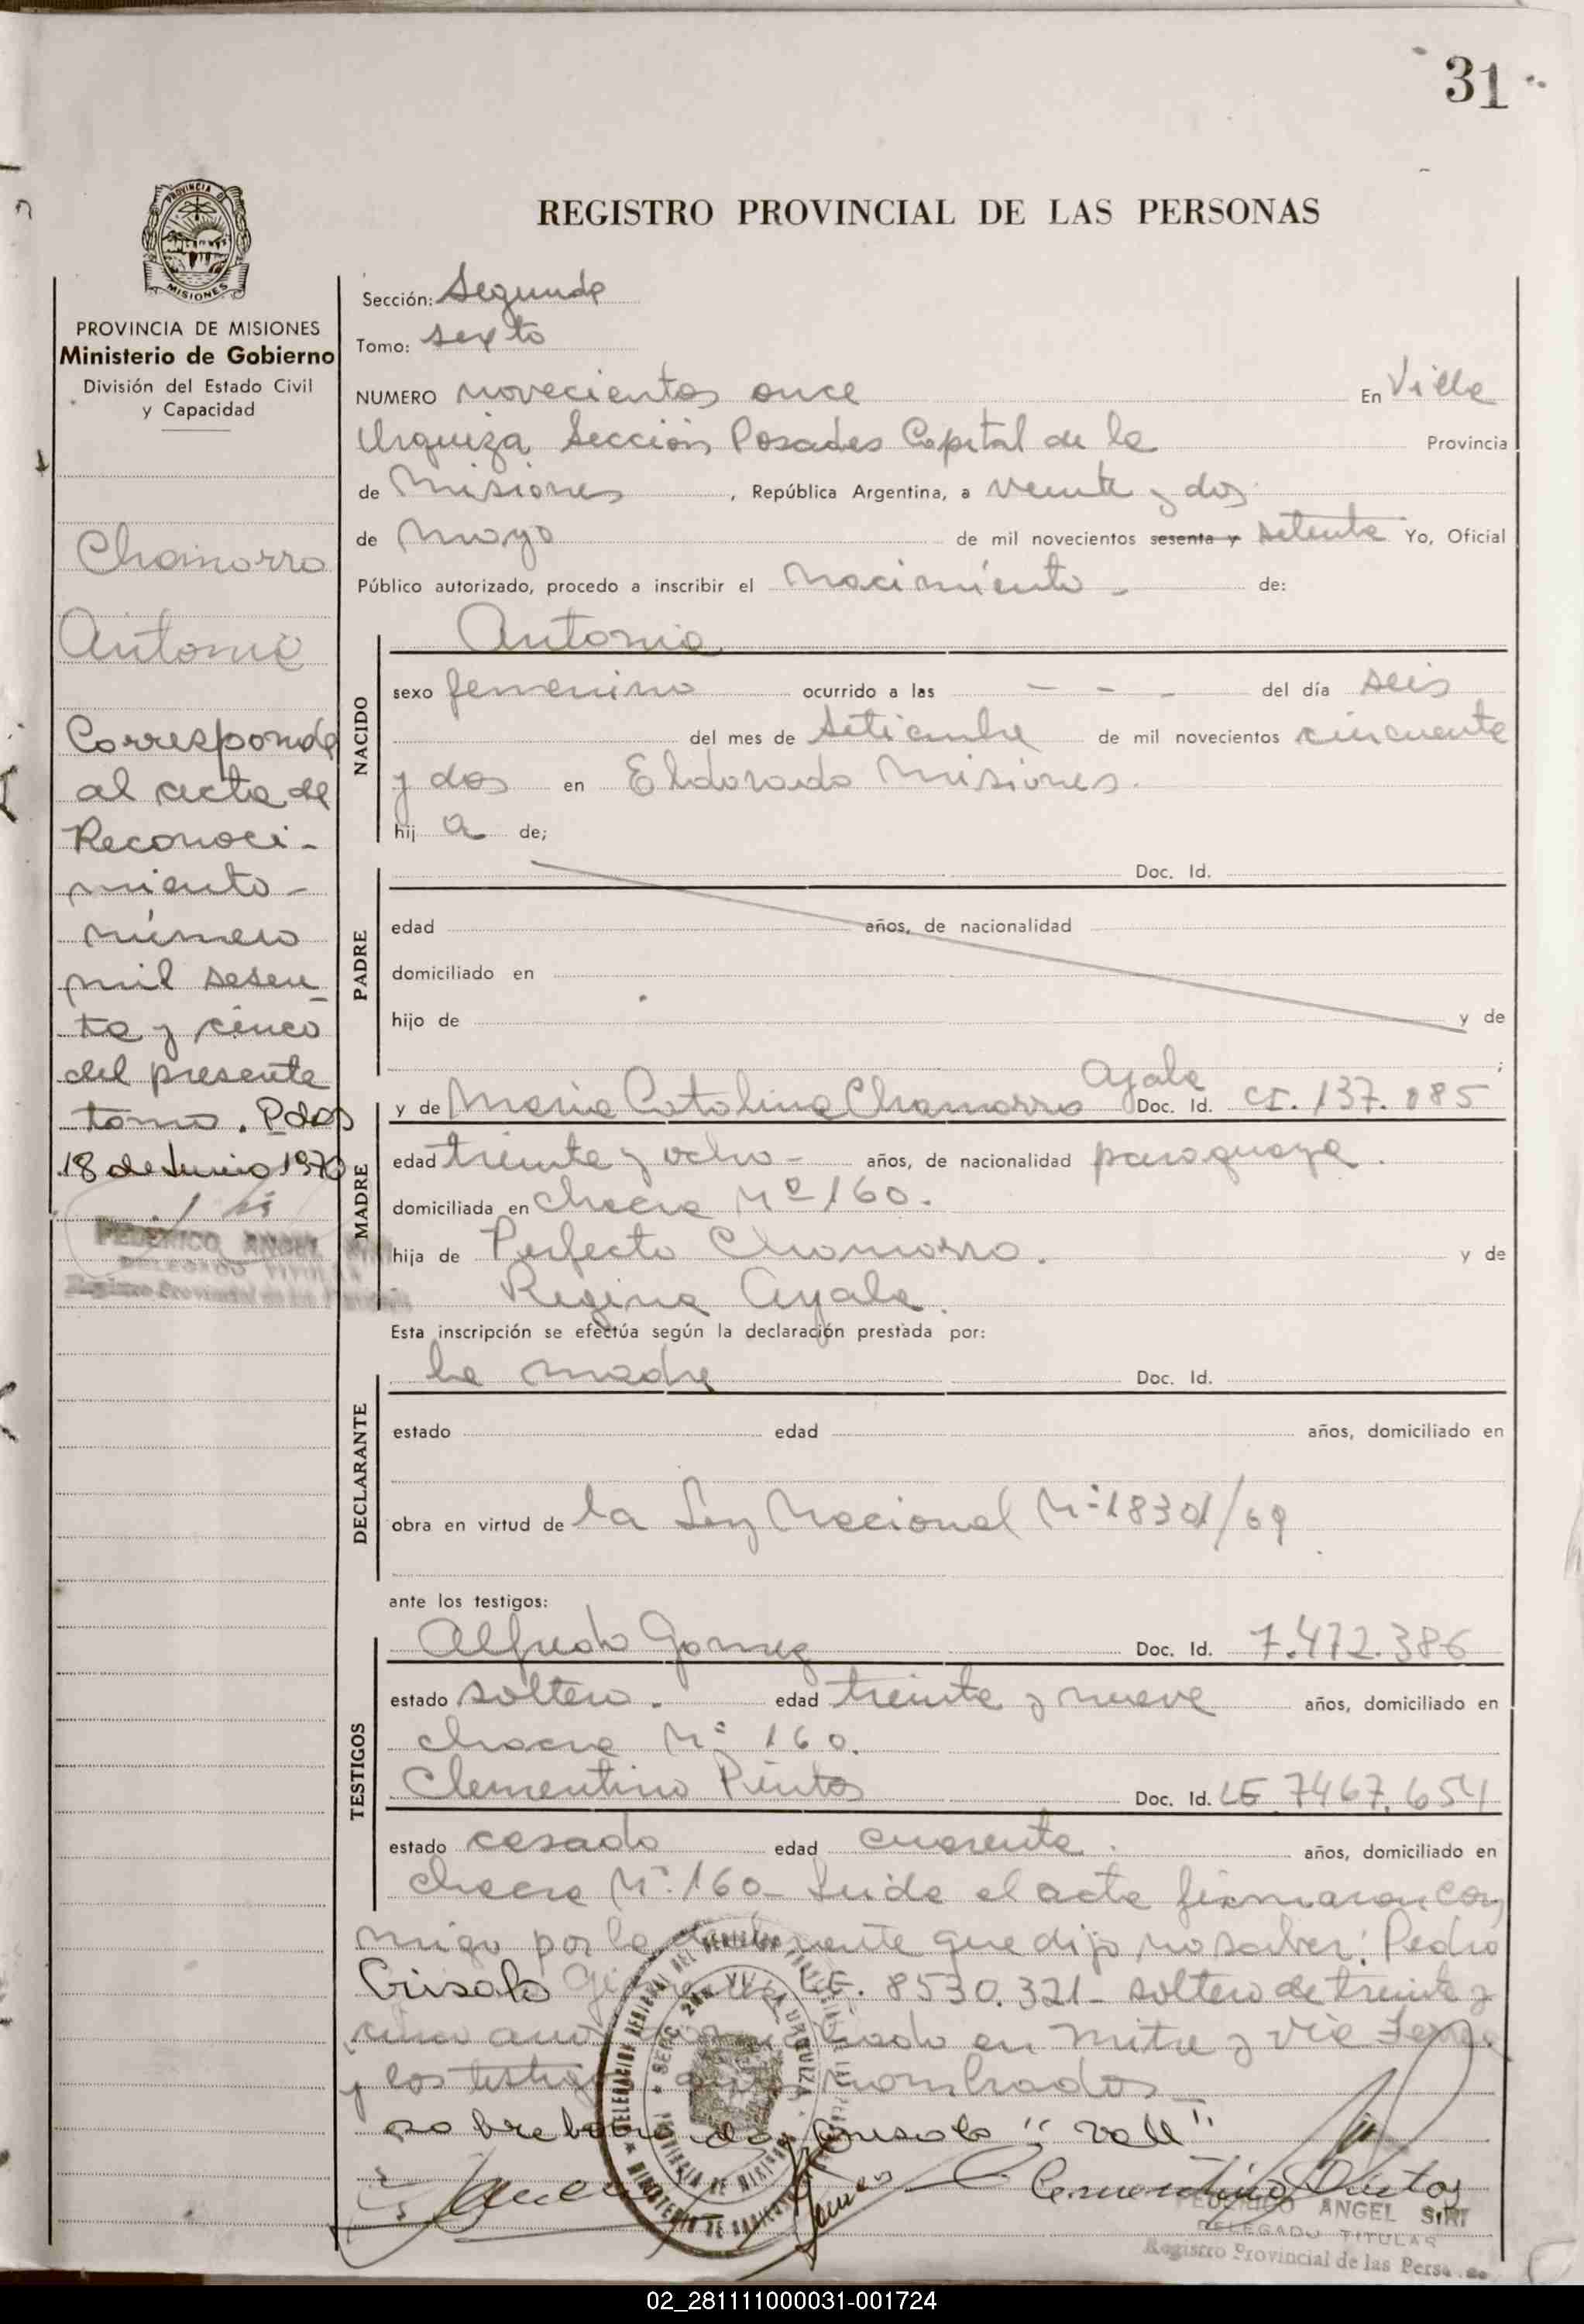 31
REGISTRO PROVINCIAL DE LAS PERSONAS
PROVINCIA DE MISIONES
Ministerio de Gobierno
División del Estado Civil
y Capacidad
Chamorro
Antonia
Corresponde
al acta de
Reconoci-
miento-
número
mil sesen-
ta y cinco
del presente
tomo. Pdas
18 de Junio 1970
FEDERICO ANGEL
DELEGADO TITULAR
Registro Provincial de las
Sección: Segunda
Tomo: sexto
NUMERO novecientos once En Villa
Urquiza Sección Posadas Capital de la Provincia
de Misiones, República Argentina, a veinte y dos
de mayo de mil novecientos sesenta y setenta Yo, Oficial
Público autorizado, procedo a inscribir el nacimiento - de:
NACIDO
Antonia
sexo femenino ocurrido a las - - - del día seis
del mes de setiembre de mil novecientos cincuenta
y dos en Eldorado Misiones.
hij a de;
PADRE
Doc. Id.
edad años, de nacionalidad
domiciliado en
hijo de y de
;
MADRE
Ayala
y de Maria Catalina Chamorro Doc. Id. CI. 137.085
edad treinta y ocho- años, de nacionalidad paraguaya.
domiciliada en chacra Nº 160.
hija de Perfecto Chamorro. y de
Regina Ayala.
Esta inscripción se efectúa según la declaración prestada por:
DECLARANTE
la madre Doc. Id.
estado edad años, domiciliado en
obra en virtud de la Ley Nacional Nº 18301/69
ante los testigos:
TESTIGOS
Alfredo Gomez Doc. Id. 7.472.386
estado soltero. edad treinta y nueve años, domiciliado en
chacra Nº 160.
Clementino Pintos Doc. Id. LE 7467.654
estado casado edad cuarenta. años, domiciliado en
chacra Nº 160- Leida el acta firmaron con
migo por la que dijo no saber: Pedro
Crisolo LE. 8530.321- soltero de treinta y
cinco años en Mitre y Vía
y los testigos nombrados-
sobre Crisolo "Vale"
Clementino Pintos
FEDERICO ANGEL SIRI
DELEGADO TITULAR
Registro Provincial de las
02_281111000031-001724